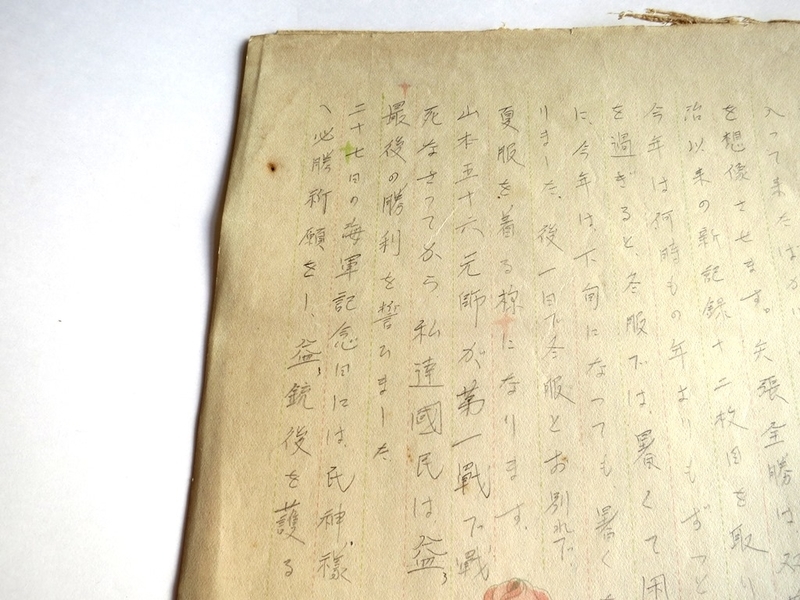 入って来たばかり
を想像させます。矢張全勝は双
治以来の新記録十二枚目を取り
今年は何時もの年よりもずっと
を過ぎると、冬服では、暑くて困
に、今年は、下旬になっても暑く
りました、後一日で冬服とお別れで
夏服を着る様になります。
山本五十六元師が第一戦で戦
死なさってから、私達國民は益〻
最後の勝利を誓ひました
二十七日の海軍記念日には、氏神様
へ必勝祈願をし、益〻銃後を護る